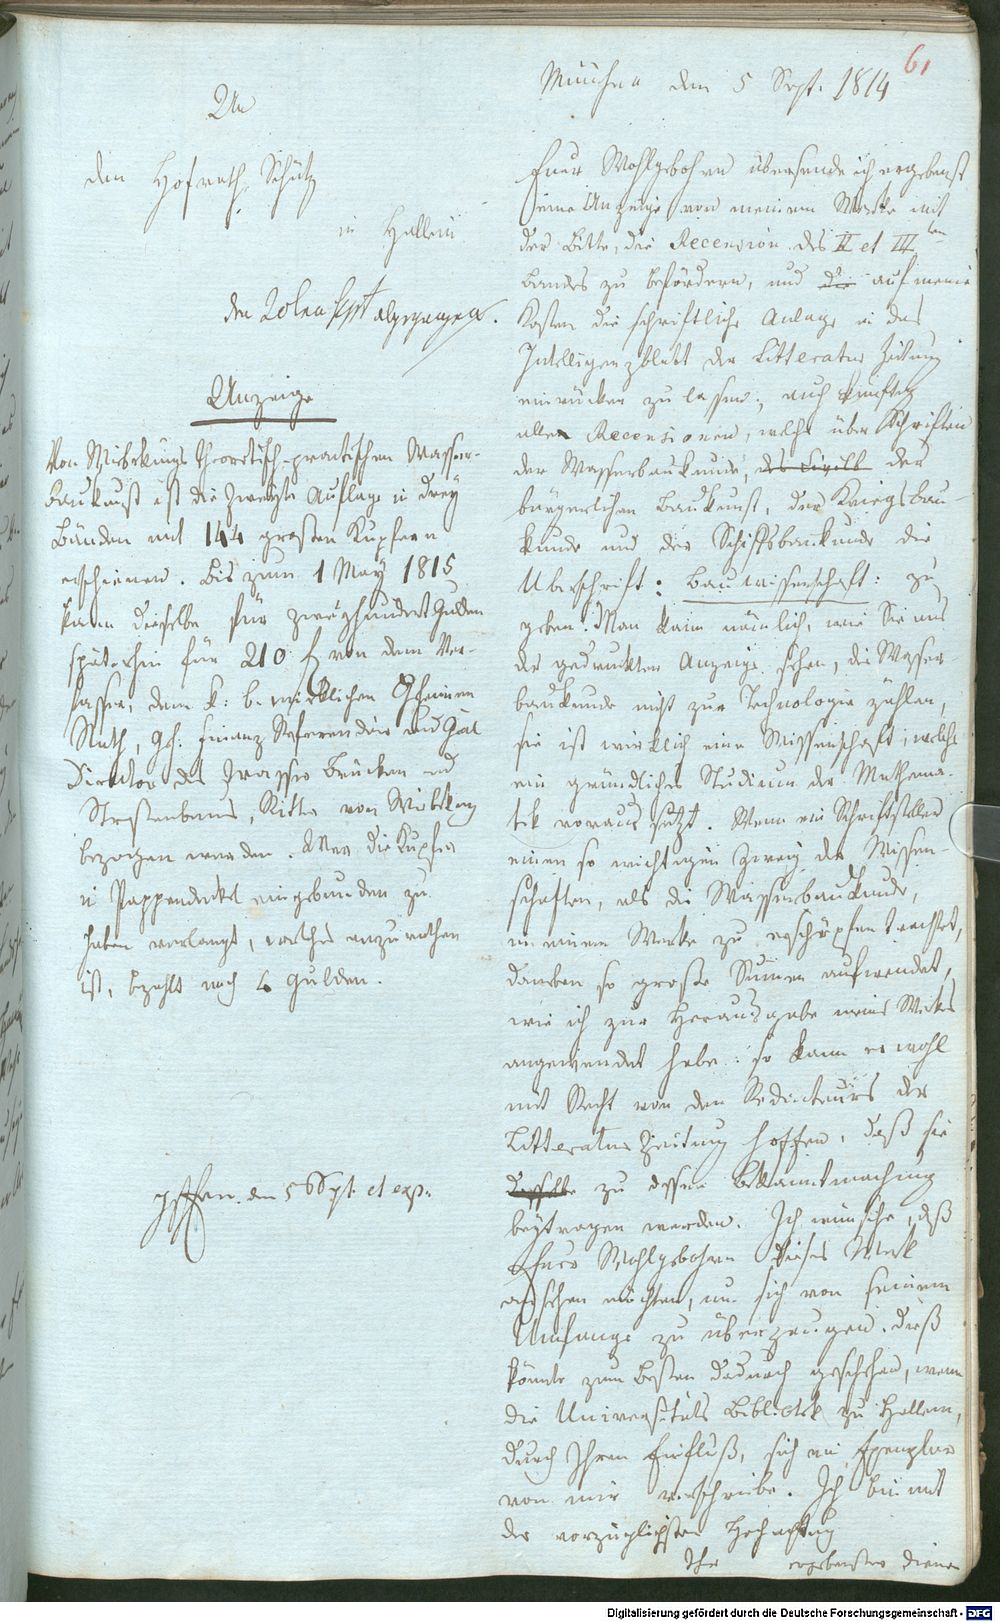 61
An
den Hofrath Schütz
in Hallein
den 20ten Spt abgegangen.
Anzeige
Von Wiebekings theoretisch-practischen Wasser-
baukunst ist die zweyte Auflage in drey
Bänden mit 144 großen Kupfern
erschienen. Bis zum 1 May 1815
kann dieselbe für zweyhundert Gulden
späterhin für 210 f von dem Ver-
fasser, dem k: b. wirklichen Geheimen
Rath, Gh. Finanz Referendär und Gäl
Director des Wasser Brücken und
Straßenbaus, Ritter von Wiebeking
bezogen werden. Wer die Kupfer
in Pappendeckel eingebunden zu
haben verlangt, welches anzurathen
ist, bezahlt noch 6 Gulden.
den 5 Sept. et exp.
München den 5 Sept. 1814
Euer Wohlgebohren übersende ich ergebenst
eine Anzeige von meinem Werke mit
der Bitte, die Recension des II et III ten
Bandes zu befördern, und die auf meine
Kosten die schriftliche Anlage in das
Intelligenzblatt der Litteratur Zeitung
einrücken zu lassen; auch künftig
allen Recensionen, welche über Schriften
der Wasserbaukunde, des Civilb der
bürgerlichen Baukunst, der Kriegsbau-
kunde und der Schiffsbaukunde die
Uberschrift: Bauwissenschaft: zu
geben. Man kann nämlich, wie Sie aus
der gedruckten Anzeige sehen, die Wasser
baukunde nicht zur Technologie zählen,
sie ist wirklich eine Wissenschaft, welche
ein gründliches Studium der Mathema-
tik voraus setzt. Wenn ein Schriftsteller
einen so wichtigen Zweig der Wissen-
schaften, als die Wasserbaukunde,
in einem Werke zu erschöpfen trachtet,
daneben so große Sumen aufwendet,
wie ich zur Herausgabe meines Werkes
angewendet habe: so kann er wohl
mit Recht von den Redacteurs der
Litteratur Zeitung hoffen, daß sie
dasselbe zu dessen Bekanntmachung
beytragen werden. Ich wünsche, daß
Euer Wohlgebohren dieses Werk
ansehen möchten, um sich von seinem
Umfange zu überzeugen. Dieß
könnte zum besten dadurch geschehen, wenn
die Universitäts Bibliothek zu Hallein,
durch Ihren Einfluß, sich ein Exemplar
von mir verschriebe. Ich bin mit
der vorzüglichsten Hochachtung
Ihr ergebenster Diener
Digitalisierung gefördert durch die Deutsche Forschungsgemeinschaft - DFG